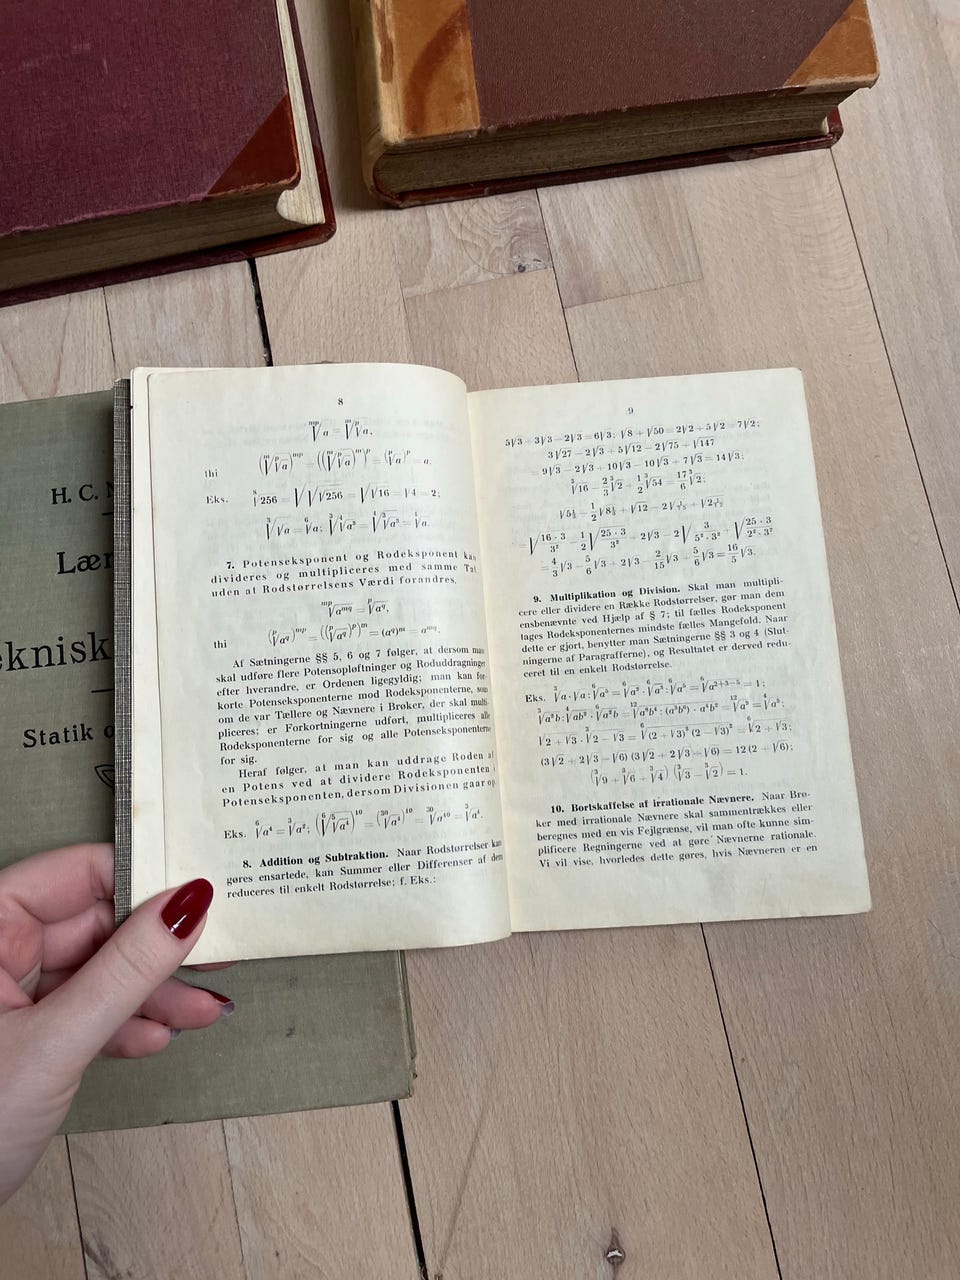 H. C.
Lær
eknisk
Statik o
8
ᵐᵖ√a = ᵐ√ᵖ√a,
thi (ᵐ√ᵖ√a)ᵐᵖ = ((ᵐ√ᵖ√a)ᵐ)ᵖ = (ᵖ√a)ᵖ = a.
Eks. ⁸√256 = √√√256 = √√16 = √4 = 2;
³√√a = ⁶√a; ³√⁴√a³ = ⁴√³√a³ = ⁴√a.
7. Potenseksponent og Rodeksponent kan
divideres og multipliceres med samme Tal,
uden at Rodstørrelsens Værdi forandres,
ᵐᵖ√aᵐq = ᵖ√aq,
thi (ᵖ√aq)ᵐᵖ = ((ᵖ√aq)ᵖ)ᵐ = (aq)ᵐ = aᵐq.
Af Sætningerne §§ 5, 6 og 7 følger, at dersom man
skal udføre flere Potensopløftninger og Roduddragninger
efter hverandre, er Ordenen ligegyldig; man kan for-
korte Potenseksponenterne mod Rodeksponenterne, som
om de var Tællere og Nævnere i Brøker, der skal multi-
pliceres; er Forkortningerne udført, multipliceres alle
Rodeksponenterne for sig og alle Potenseksponenterne
for sig.
Heraf følger, at man kan uddrage Roden a
en Potens ved at dividere Rodeksponenten i
Potenseksponenten, dersom Divisionen gaar op.
Eks. ⁶√a⁴ = ³√a²; (⁶√⁵√a⁴)¹⁰ = (³⁰√a⁴)¹⁰ = ³⁰√a⁴⁰ = ³√a⁴.
8. Addition og Subtraktion. Naar Rodstørrelser kan
gøres ensartede, kan Summer eller Differenser af dem
reduceres til enkelt Rodstørrelse; f. Eks.:
9
5√3 + 3√3 − 2√3 = 6√3; √8 + √50 = 2√2 + 5√2 = 7√2;
3√27 − 2√3 + 5√12 − 2√75 + √147
= 9√3 − 2√3 + 10√3 − 10√3 + 7√3 = 14√3;
³√16 − 2/3 ³√2 + 1/2 ³√54 = 17/6 ³√2;
√5⅓ − 1/2 √8⅓ + √12 − 2√1/15 + √2 1/12
= √(16 · 3/3²) − 1/2 √(25 · 3/3²) + 2√3 − 2√(3/5² · 3²) + √(25 · 3/2² · 3²)
= 4/3 √3 − 5/6 √3 + 2√3 − 2/15 √3 + 5/6 √3 = 16/5 √3.
9. Multiplikation og Division. Skal man multipli-
cere eller dividere en Række Rodstørrelser, gør man dem
ensbenævnte ved Hjælp af § 7; til fælles Rodeksponent
tages Rodeksponenternes mindste fælles Mangefold. Naar
dette er gjort, benytter man Sætningerne §§ 3 og 4 (Slut-
ningerne af Paragrafferne), og Resultatet er derved redu-
ceret til en enkelt Rodstørrelse.
Eks. ³√a · √a : ⁶√a⁵ = ⁶√a² · ⁶√a³ : ⁶√a⁵ = ⁶√a²⁺³⁻⁵ = 1;
³√a²b : ⁴√ab² · ⁶√a²b = ¹²√a⁸b⁴ : (a³b⁶) · a⁴b² = ¹²√a⁹ = ⁴√a³;
√2 + √3 · ³√2 − √3 = ⁶√(2 + √3)³ (2 − √3)² = ⁶√2 + √3;
(3√2 + 2√3 − √6) (3√2 + 2√3 + √6) = 12 (2 + √6);
(³√9 + ³√6 + ³√4) (³√3 − ³√2) = 1.
10. Bortskaffelse af irrationale Nævnere. Naar Brø-
ker med irrationale Nævnere skal sammentrækkes eller
beregnes med en vis Fejlgrænse, vil man ofte kunne sim-
plificere Regningerne ved at gøre Nævnerne rationale.
Vi vil vise, hvorledes dette gøres, hvis Nævneren er en